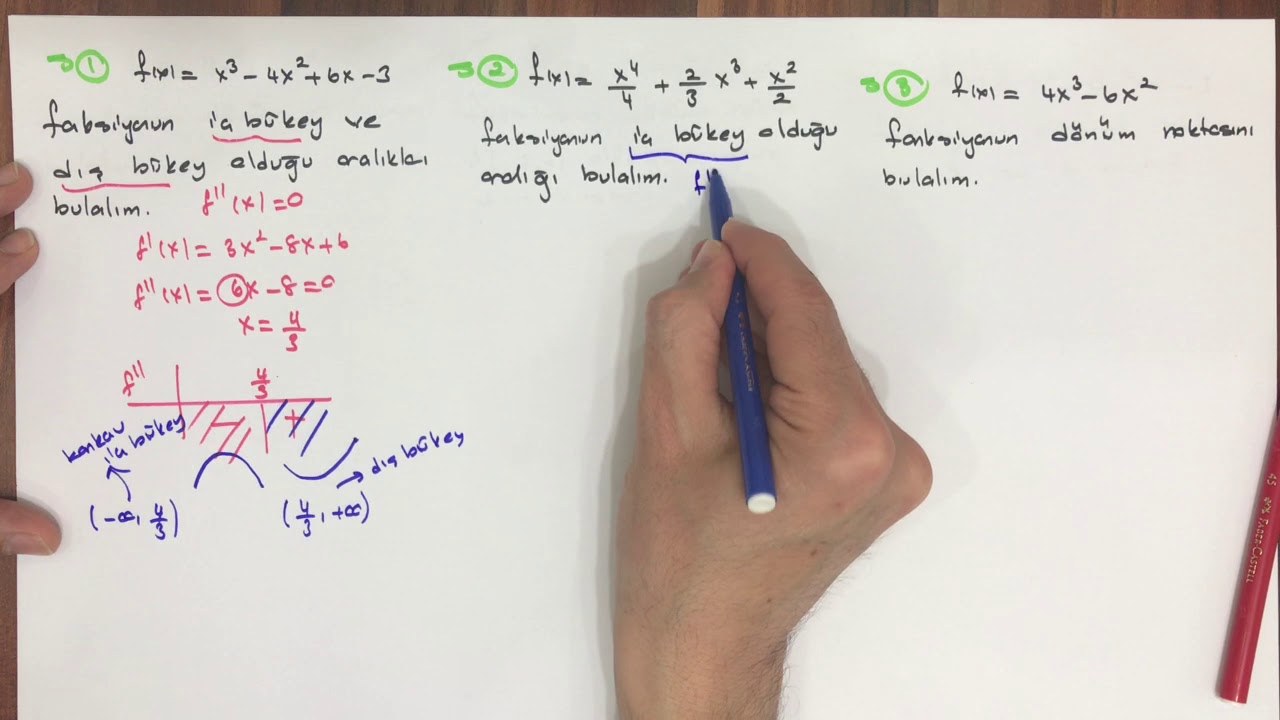 1 f(x) = x³ - 4x² + 6x - 3
fonksiyonun iç bükey ve
dış bükey olduğu aralıkları
bulalım. f''(x) = 0
f'(x) = 3x² - 8x + 6
f''(x) = 6x - 8 = 0
x = 4/3
f'' 4/3
- +
konkav
iç bükey
dış bükey
(-∞, 4/3) (4/3, +∞)
2 f(x) = x⁴/4 + 2/3 x³ + x²/2
fonksiyonun iç bükey olduğu
aralığı bulalım. f''
3 f(x) = 4x³ - 6x²
fonksiyonun dönüm noktasını
bulalım.
FABER-CASTELL